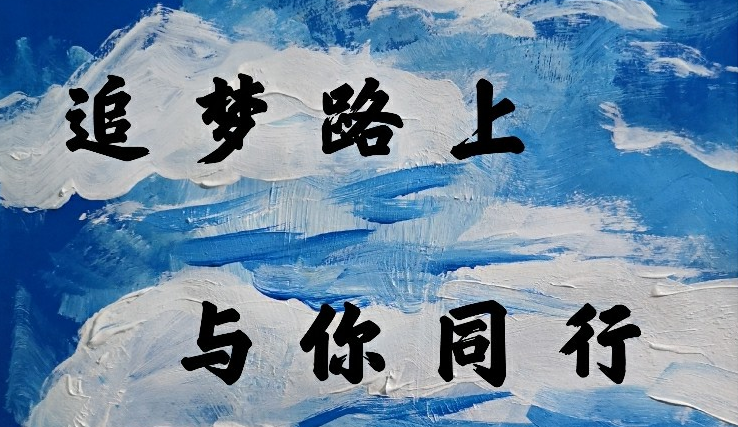 追梦路上
与你同行